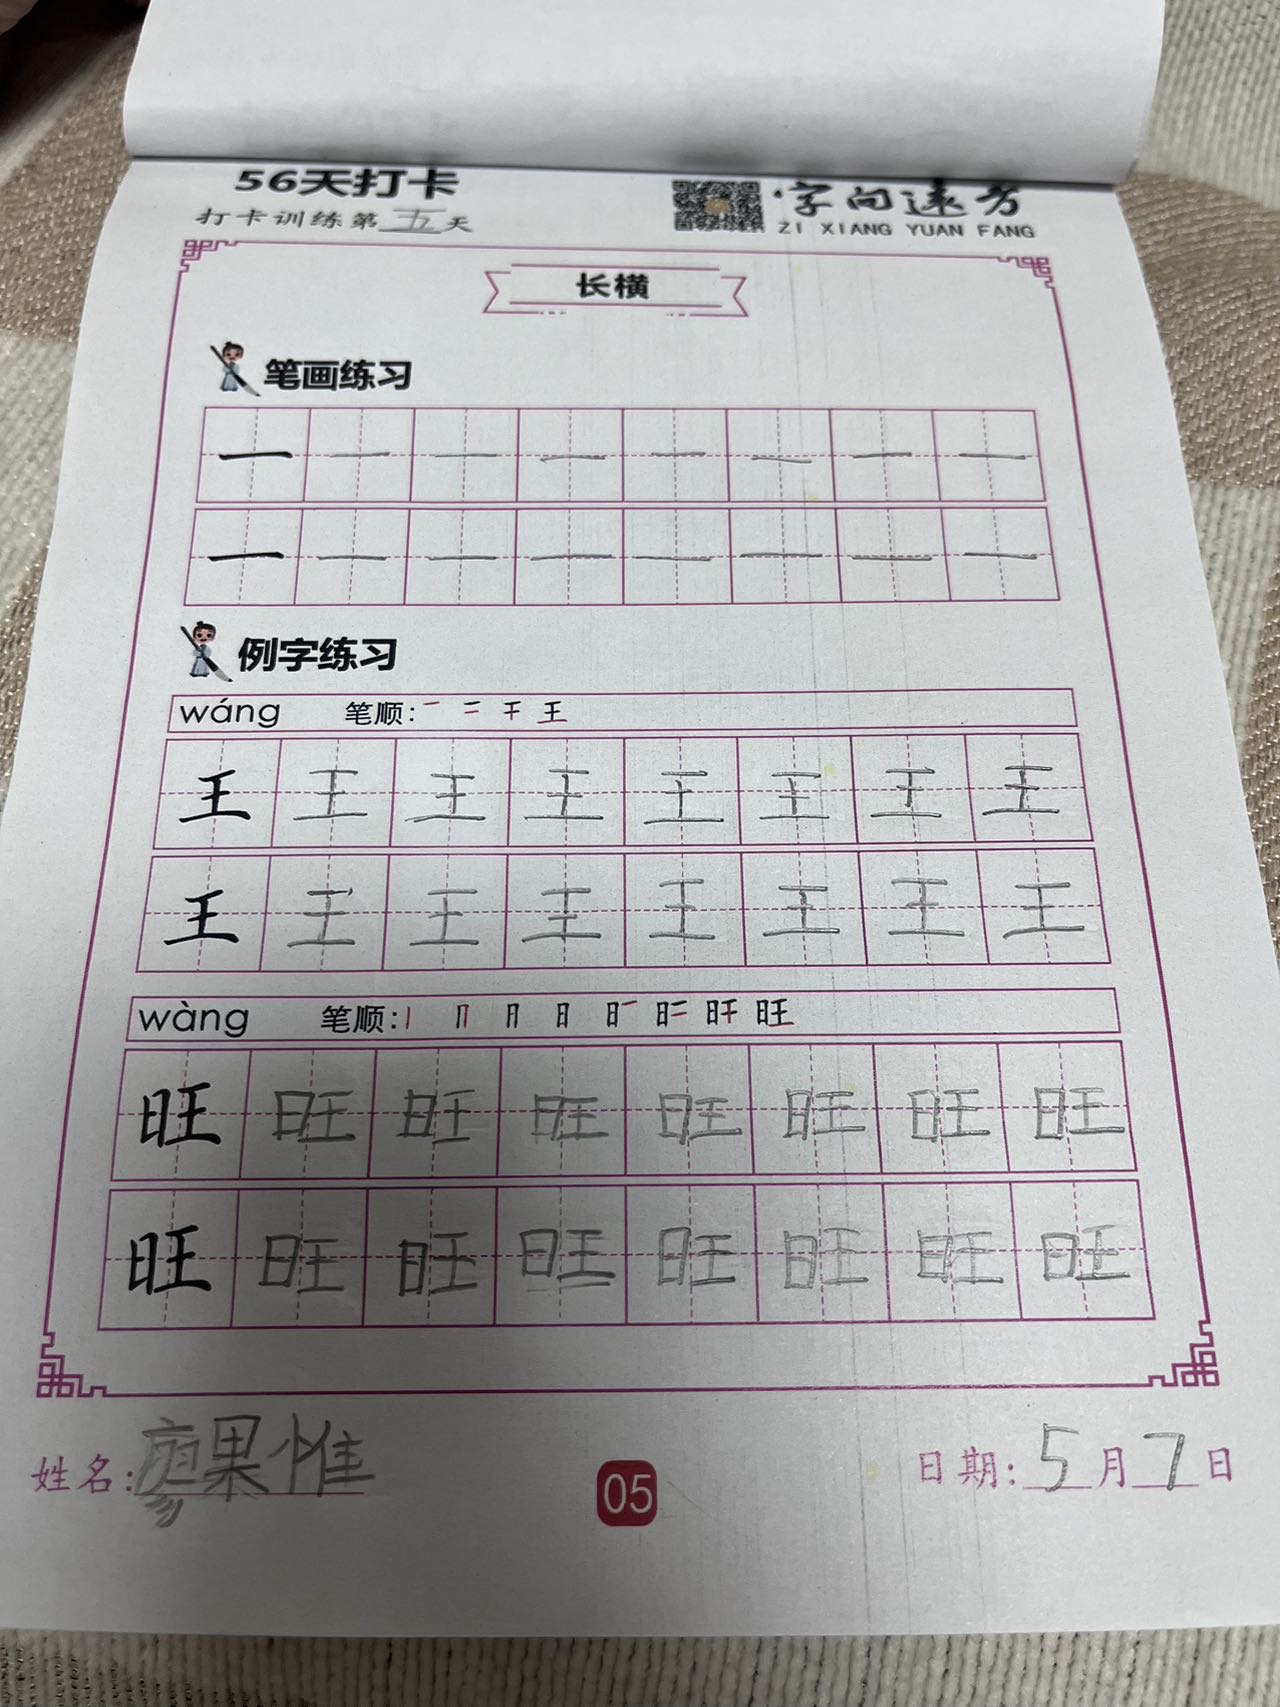 56天打卡
打卡训练第五天
字向远方
ZI XIANG YUAN FANG
长横
笔画练习
一 一 一 一 一 一 一 一
一 一 一 一 一 一 一 一
例字练习
wáng 笔顺: 一 二 干 王
王 王 王 王 王 王 王 王
王 王 王 王 王 王 王 王
wàng 笔顺: 丨 冂 月 日 旺
旺 旺 旺 旺 旺 旺 旺 旺
旺 旺 旺 旺 旺 旺 旺 旺
姓名: 果惟
05
日期: 5月7日